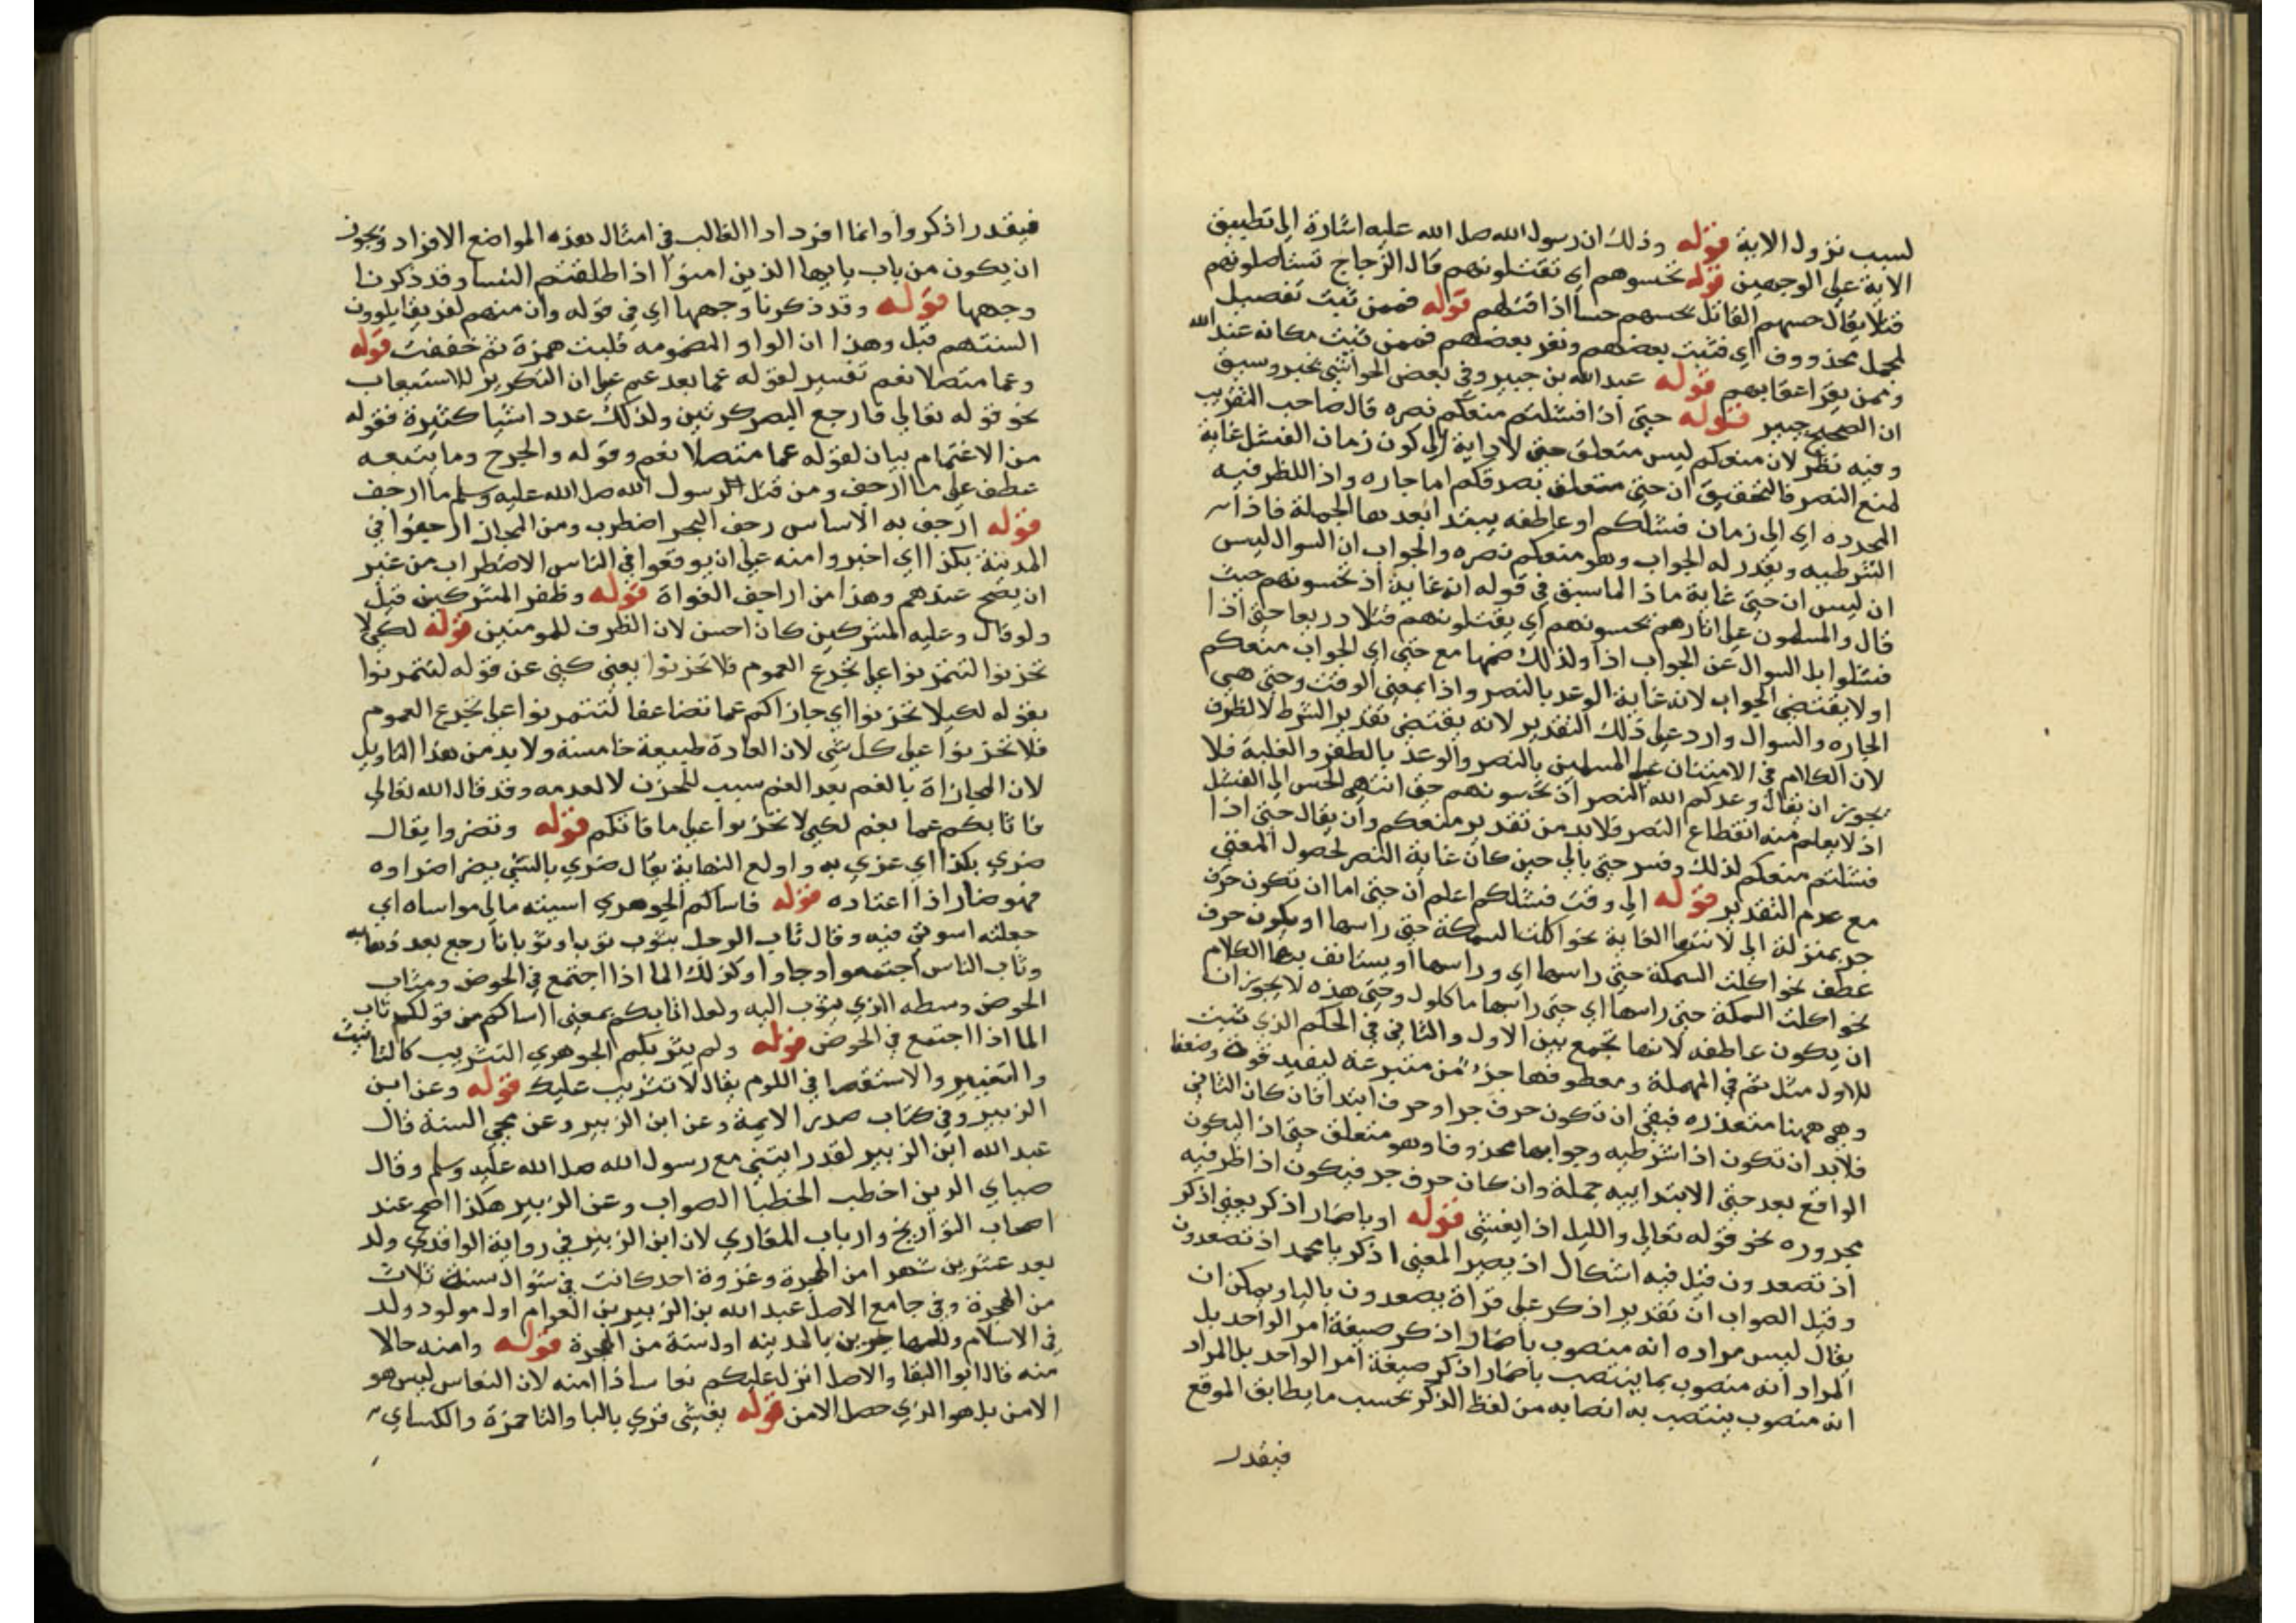 لسبب نزول الاية قوله وذلك ان رسول الله صلى الله عليه اشارة الى تطبيق
الاية على الوجهين قوله تحسوهم اي تقتلونهم قال الزجاج تستاصلونهم
قتلا يقال حسهم القاتل يحسهم حسا اذا قتلهم قوله فممن ثبت تفصيل
لمجمل محذووف اي فثبت بعضهم ونفر بعضهم فممن ثبت مكانه عند الله
وممن نفر اعقابهم قوله عبد الله بن جبير وفي بعض الحواشي بخبر وسبق
ان الصحيح جبير قوله حتى اذا فشلتم منعكم نصره قال صاحب التقريب
وفيه نظر لان منعكم ليس متعلق حتى لاداية الى كون زمان الفشل غاية
لمنع النصر فالتحقيق ان حتى متعلق بصرفكم اما جاره واذا للظرفيه
المجرده اي الى زمان فشلكم او عاطفه يبتدا بعدها الجملة فاذا
الشرطيه ويقدر له الجواب وهو منعكم نصره والجواب ان السوال ليس
ان ليس ان حتى غاية ماذا الما سبق في قوله انه غاية اذ تحسونهم حيث
قال والمسلمون على اثارهم يحسونهم اي يقتلونهم قتلا دريعا حتى اذا
فشلوا بل السوال عن الجواب اذا ولذلك ضمها مع حتى اي الجواب منعكم
اولا يقتضي الجواب لانه غاية الوعد بالنصر واذا بمعنى الوقت وحتى هي
الجاره والسوال وارد على ذلك التقدير لانه يقتضي تقدير الشرط لا الظرف
لان الكلام في الامتنان على المسلمين بالنصر والوعد بالظفر والغلبة فلا
يجوز ان يقال وعدكم الله النصر اذ تحسونهم حتى انتهى الحس الى الفشل
اذ لا يعلم منه انقطاع النصر فلا بد من تقدير منعكم وان يقال حتى اذا
فشلتم منعكم لذلك وفسر حتى بالى حين كان غاية النصر لحصول المعنى
مع عدم التقدير قوله الى وقت فشلكم اعلم ان حتى اما ان تكون حرف
جر بمنزلة الى لانتها الغاية نحو اكلت السمكة حتى راسها او يكون حرف
عطف نحو اكلت السمكة حتى راسها اي وراسها او يستانف بها الكلام
نحو اكلت السمكة حتى راسها اي حتى راسها ماكلول وحتى هذه لا يجوز ان
ان يكون عاطفه لانها تجمع بين الاول والثاني في الحكم الذي تثبت
للاول مثل ثم في المهملة ومعطوفها جزء من متبرعه ليفيد قوة وضعفا
وهي ههنا متعذره فبقي ان تكون حرف جر او حرف ابتدا فان كان الثاني
فلا بد ان تكون اذا شرطيه وجوابها محذوفا وهو متعلق حتى اذ اليكون
الواقع بعد حتى الابتداييه جملة وان كان حرف جر فيكون اذا ظرفيه
مجروره نحو قوله تعالى والليل اذا يغشى قوله او باضمار اذكر يعني اذكر
اذ تصعدون قيل فيه اشكال اذ يصير المعنى اذكر يا محمد اذ تصعدون
وقيل الصواب ان تقدير اذكر على قراة يصعدون باليا ويمكن ان
يقال ليس مراده انه منصوب باضمار اذكر صيغة امر الواحد بل
المراد انه منصوب بما ينتصب باضمار اذكر صيغة امر الواحد بل المراد
انه منصوب ينتصب به انصابه من لفظ الذكر بحسب ما يطابق الموقع
فيقدر
فيقدر اذكروا وانما افرد ادا الغالب في امثال هذه المواضع الافراد ويجوز
ان يكون من باب يا يها الذين امنوا اذا طلقتم النسا وقد ذكرنا
وجهها قوله وقد ذكرنا وجهها اي في قوله وان منهم لفريقا يلوون
السنتهم قيل وهذا ان الواو المضمومه قلبت همزة ثم خففت قوله
وغما متصلا بغم تفسير لقوله غما بعد غم على ان التكرير للاستيعاب
نحو قوله تعالى فارجع البصر كرتين ولذلك عدد اشيا كثيرة فقوله
من الاغتمام بيان لقوله غما متصلا بغم وقوله والجرح وما يتبعه
عطف على ما ارجف ومن قتل الرسول الله صلى الله عليه وسلم ما ارجف
قوله ارجف به الاساس رجف البحر اضطرب ومن المجاز ارجفوا في
المدينة بكذا اي اخبروا منه على ان يوقعوا في الناس الاضطراب من غير
ان يصح عندهم وهذا من اراجيف الغواة قوله وظفر المشركين قيل
ولو قال وغلبه المشركين كان احسن لان الظرف للمومنين قوله لكيلا
تحزنوا لتتمرنوا على تجرع الغموم فلا تحزنوا يعني كنى عن قوله لتتمرنوا
بقوله لكيلا تحزنوا اي جازاكم غما تضاعفا لتتمرنوا على تجرع الغموم
فلا تحزنوا على كل شي لان العادة طبيعة خامسة ولا بد من هذا التاويل
لان المجازاة بالغم بعد الغم سبب للحزن لا لعدمه وقد قال الله تعالى
فاثابكم غما بغم لكيلا تحزنوا على ما فاتكم قوله وتضروا يقال
ضري بكذا اي غري به واولع النهاية يقال ضري بالشي يضر اضراوه
فهو ضار اذا اعتاده قوله فاساكم الجوهري اسيته مالي مواساه اي
جعلته اسوتي فيه وقال ثاب الرجل يثوب ثوبا وثوبانا رجع بعد ذهابه
وثاب الناس اجتمعوا وجاوا وكذلك الما اذا اجتمع في الحوض ومثاب
الحوض وسطه الذي يثوب اليه ولعل اثابكم بمعنى اساكم من قولكم ثاب
الما اذا اجتمع في الحوض قوله ولم يثربكم الجوهري التثريب كالتانيب
والتعيير والاستقصا في اللوم يقال لا تثريب عليك قوله وعن ابن
الزبير وفي كتاب صدر الايمة وعن ابن الزبير وعن محي السنة قال
عبد الله ابن الزبير لقد رايتني مع رسول الله صلى الله عليه وسلم وقال
ضياي الدين اخطب الخطبا الصواب وعن الزبير هكذا اصح عند
اصحاب التواريخ وارباب المغازي لان ابن الزبير في رواية الواقدي ولد
بعد عشرين شهرا من الهجرة وغزوة احد كانت في شوال سنة ثلاث
من الهجرة وفي جامع الاصل عبد الله بن الزبير بن العوام اول مولود ولد
في الاسلام وللمهاجرين بالمدينه اول سنة من الهجرة قوله وامنه حالا
منه قال ابوا البقا والاصل انزل عليكم نعاسا ذا امنه لان النعاس ليس هو
الامن بل هو الذي حصل الامن قوله يغشى قري باليا والتا حمزة والكساي